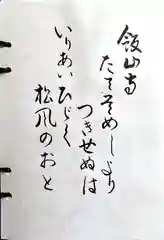 飯山寺
たてそめしより
つきせぬは
いりあいひびく
松風のおと